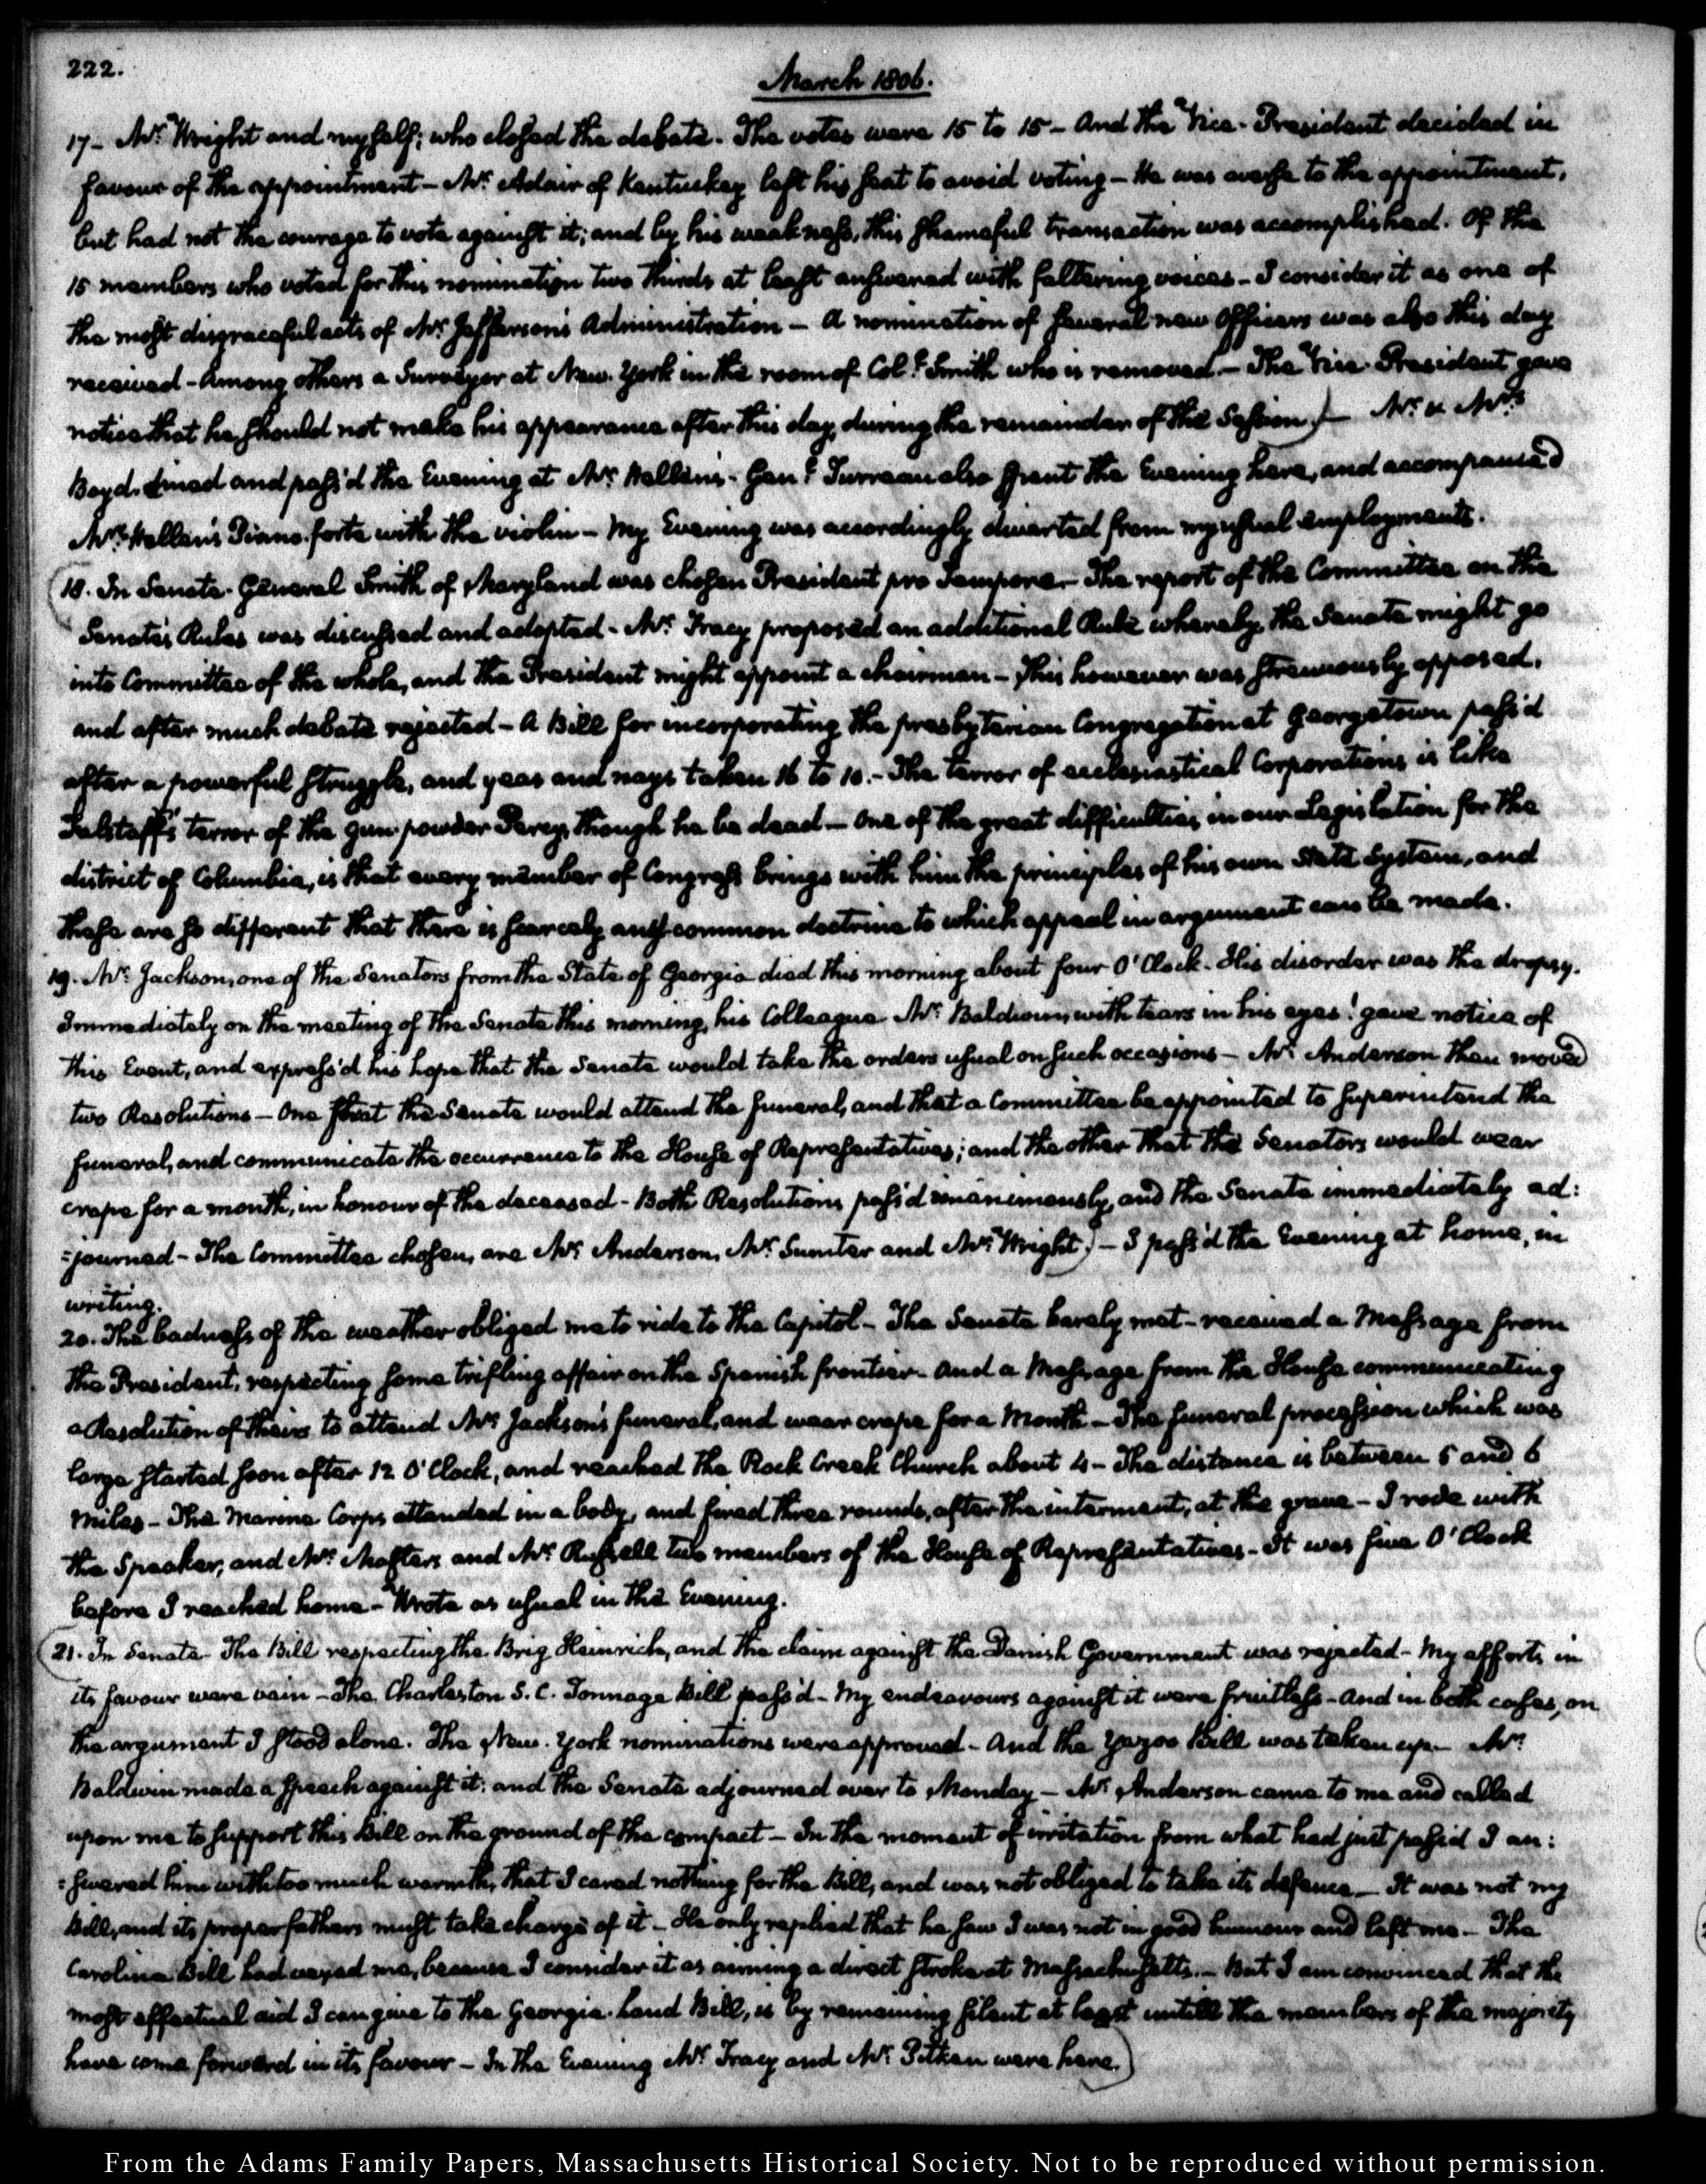 222.
March 1806.
17- Mr. Wright and myself; who closed the debate. The votes were 15 to 15 - And the Vice-President decided in
favour of the appointment - Mr. Adair of Kentuckey left his seat to avoid voting - He was averse to the appointment,
but had not the courage to vote against it; and by his weakness, this shameful transaction was accomplished. Of the
15 members who voted for this nomination two thirds at least answered with faltering voices - I consider it as one of
the most disgraceful acts of Mr. Jefferson's Administration - A nomination of several new Officers was also this day
received - Among others a Surveyor at New-York in the room of Coll. Smith who is removed. - The Vice-President gave
notice that he should not make his appearance after this day, during the remainder of the Session.) - Mr. & Mrs.
Boyd dined and pass'd the Evening at Mr. Hellen's - Genl. Turreau also spent the Evening here, and accompanied
Mrs. Hellen's Piano-forte with the violin - My Evening was accordingly diverted from my usual employments.
(18. In Senate. General Smith of Maryland was chosen President pro tempore. - The report of the Committee on the
Senate's Rules was discussed and adopted - Mr. Tracy proposed an additional Rule whereby the Senate might go
into Committee of the whole, and the President might appoint a chairman - This however was strenuously opposed,
and after much debate rejected - A Bill for incorporating the presbyterian Congregation at Georgetown pass'd
after a powerful struggle, and yeas and nays taken 16 to 10. - The terror of ecclesiastical Corporations is like
Falstaff's terror of the gun-powder Percy, though he be dead - One of the great difficulties in our Legislation for the
district of Columbia, is that every member of Congress brings with him the principles of his own State System, and
these are so different that there is scarcely any common doctrine to which appeal in argument can be made.
19. Mr. Jackson, one of the Senators from the State of Georgia died this morning about four O'Clock. His disorder was the dropsy.
Immediately on the meeting of the Senate this morning, his Colleague Mr. Baldwin, with tears in his eyes! gave notice of
this Event, and express'd his hope that the Senate would take the orders usual on such occasions - Mr. Anderson then moved
two Resolutions - One that the Senate would attend the funeral, and that a Committee be appointed to superintend the
funeral, and communicate the occurrence to the House of Representatives; and the other that the Senators would wear
crape for a month, in honour of the deceased - Both Resolutions pass'd unanimously, and the Senate immediately ad:
=journed - The Committee chosen, are Mr. Anderson, Mr. Sumter and Mr. Wright.) - I pass'd the Evening at home, in
writing.
20. The badness of the weather obliged me to ride to the Capitol - The Senate barely met - received a Message from
the President, respecting some trifling affair on the Spanish frontier - And a Message from the House communicating
a Resolution of theirs to attend Mr. Jackson's funeral, and wear crape for a Month - The funeral procession which was
large started soon after 12 O'Clock, and reached the Rock Creek Church about 4 - The distance is between 5 and 6
miles - The Marine Corps attended in a body, and fired three rounds, after the interment, at the grave - I rode with
the Speaker, and Mr. Masters and Mr. Russell two members of the House of Representatives - It was five O'Clock
before I reached home - Wrote as usual in the Evening.
(21. In Senate. The Bill respecting the Brig Heinrich, and the claim against the Danish Government was rejected - My efforts in
its favour were vain - The Charleston S. C. Tonnage Bill pass'd - My endeavours against it were fruitless - And in both cases, on
the argument I stood alone. The New-York nominations were approved - And the Yazoo Bill was taken up - Mr.
Baldwin made a speech against it: and the Senate adjourned over to Monday - Mr. Anderson came to me and called
upon me to support this Bill on the ground of the compact - In the moment of irritation from what had just pass'd I an:
=swered him with too much warmth, that I cared nothing for the Bill, and was not obliged to take its defence - It was not my
Bill, and its proper fathers must take charge of it - He only replied that he saw I was not in good humour and left me - The
Carolina Bill had vexed me, because I consider it as aiming a direct stroke at Massachusetts. - But I am convinced that the
most effectual aid I can give to the Georgia Land Bill, is by remaining silent at least untill the members of the majority
have come forward in its favour - In the Evening Mr. Tracy and Mr. Pitken were here.)
From the Adams Family Papers, Massachusetts Historical Society. Not to be reproduced without permission.